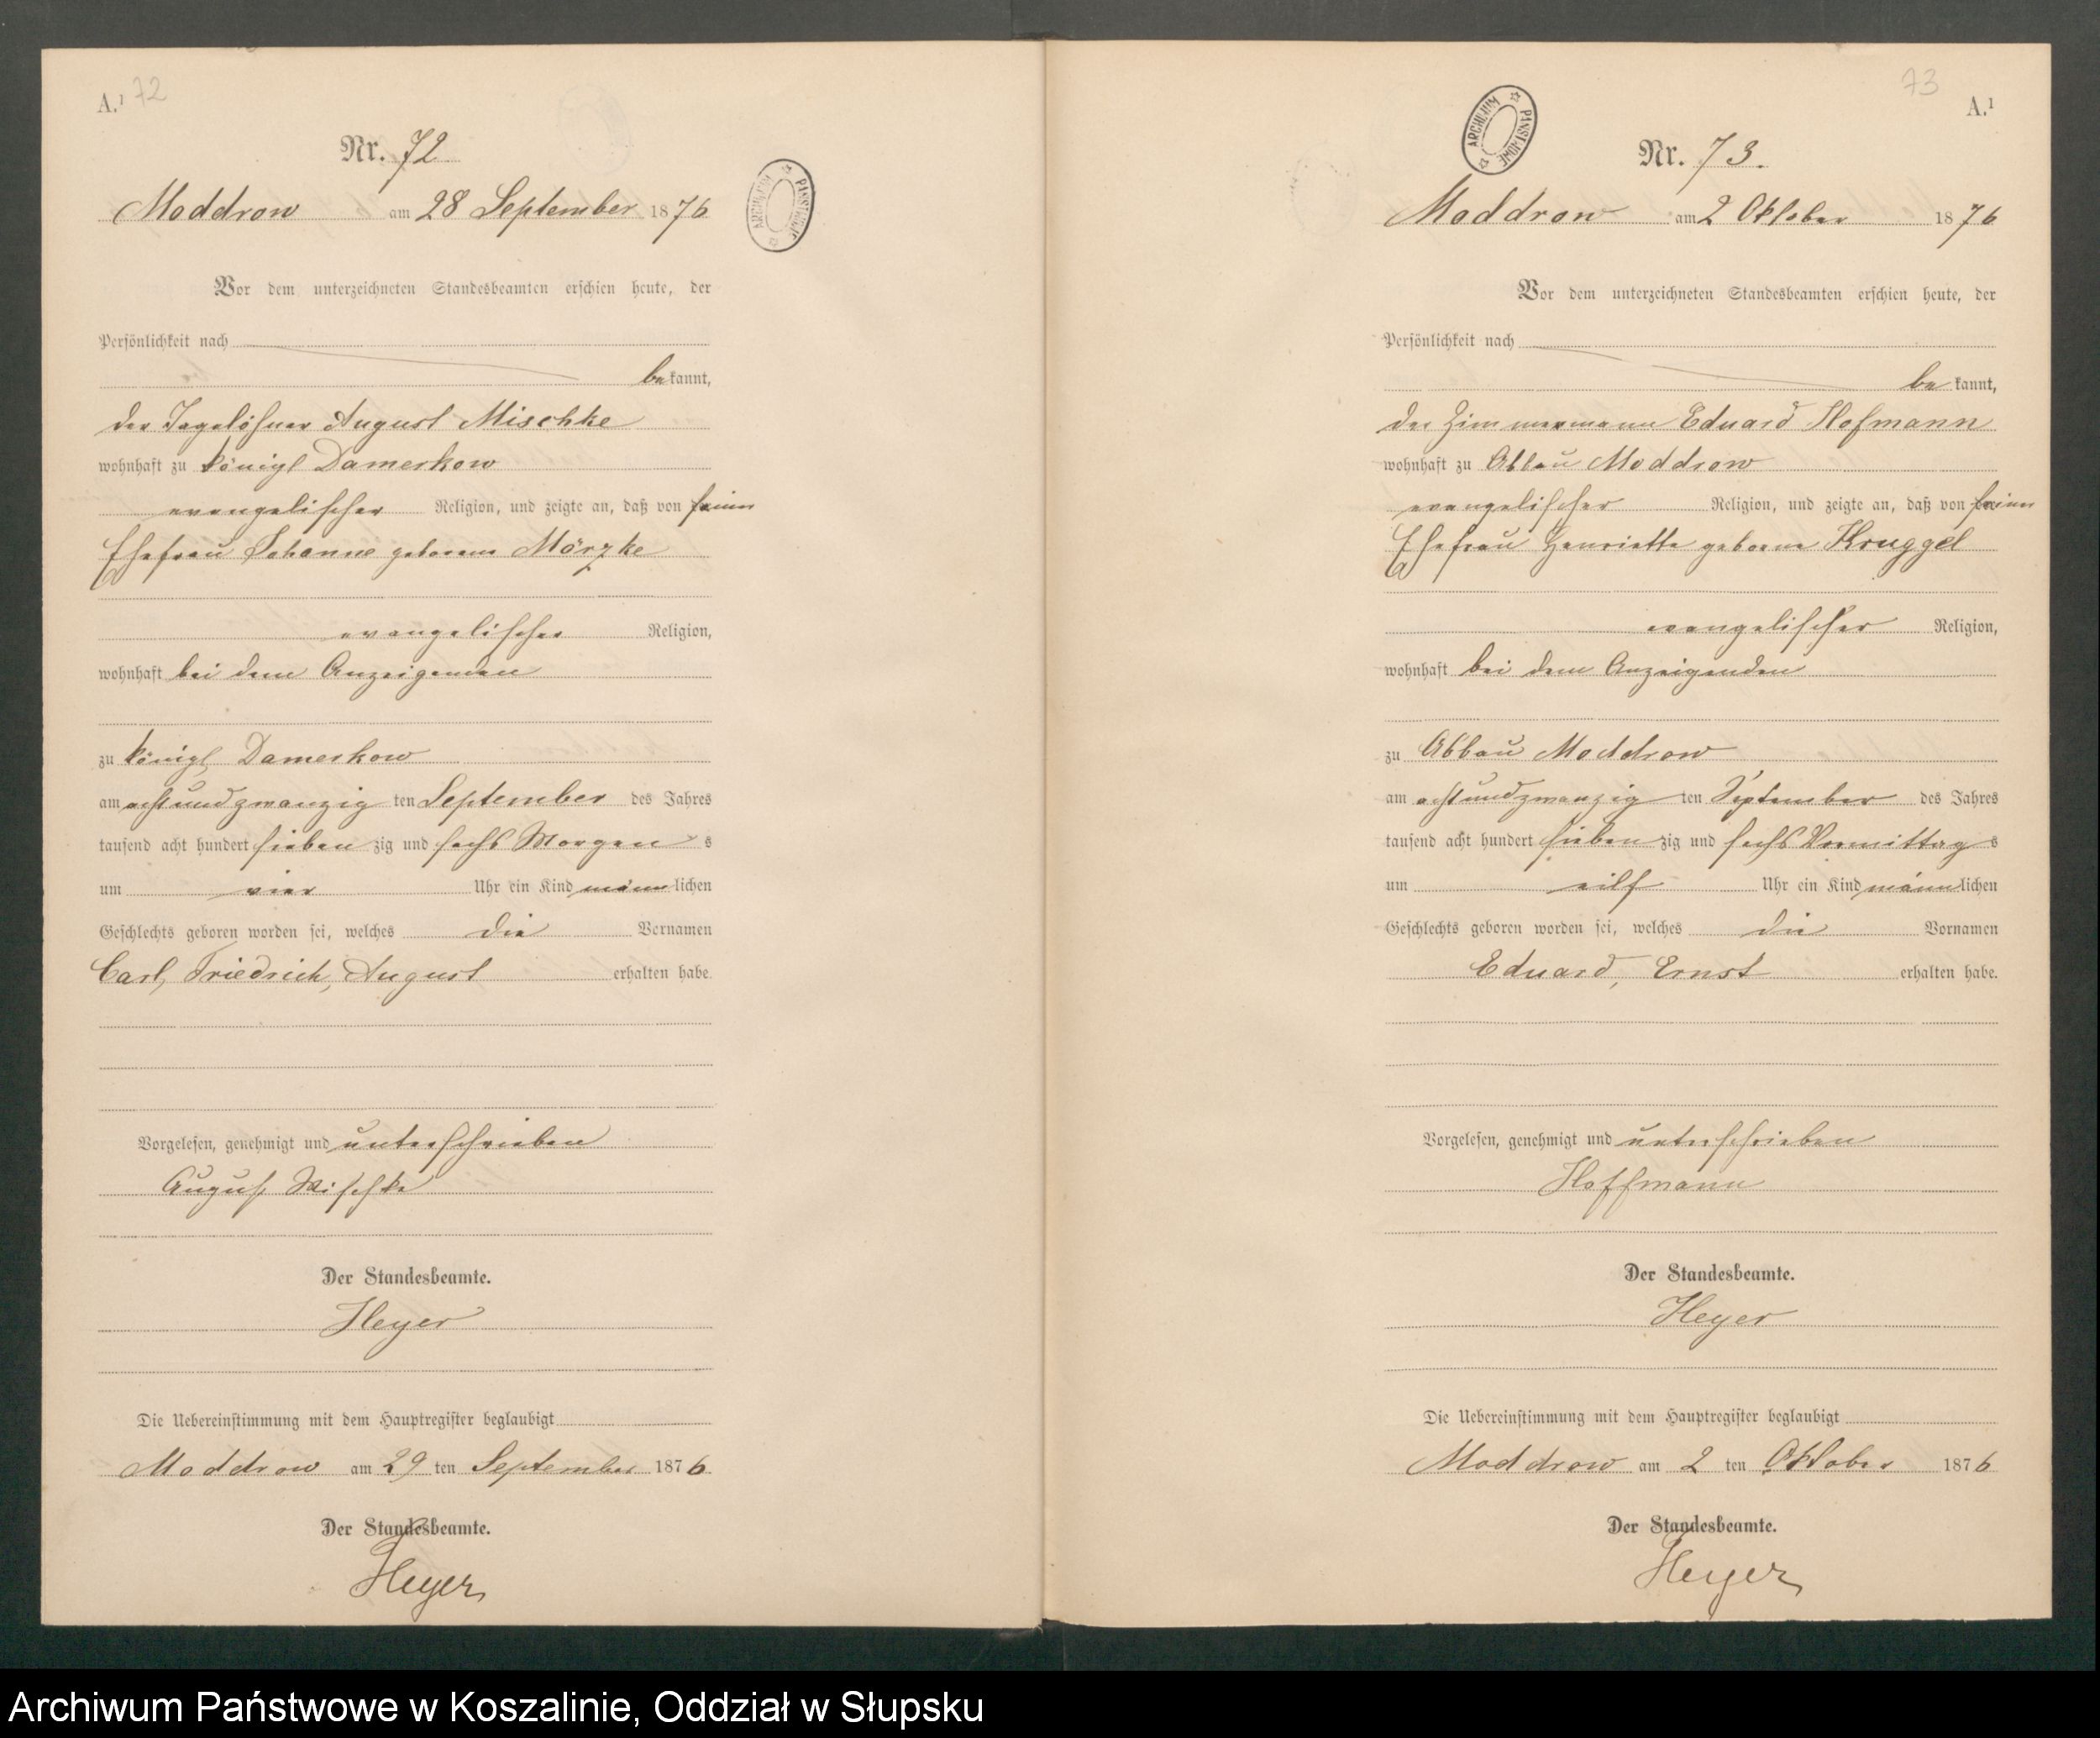 A.¹ 72
Nr. 72
Moddrow am 28 September 1876
ARCHIWUM PAŃSTWOWE
Vor dem unterzeichneten Standesbeamten erschien heute, der
Persönlichkeit nach
bekannt,
der Tagelöhner August Mischke
wohnhaft zu königl Damerkow
evangelischer Religion, und zeigte an, daß von seiner
Ehefrau Johanne geborene Mörzke
evangelischer Religion,
wohnhaft bei dem Anzeigenden
zu königl Damerkow
am achtundzwanzig ten September des Jahres
tausend acht hundert siebenzig und sechs Morgens
um vier Uhr ein Kind männlichen
Geschlechts geboren worden sei, welches die Vornamen
Carl, Friedrich, August erhalten habe.
Vorgelesen, genehmigt und unterschrieben
August Mischke
Der Standesbeamte.
Heyer
Die Uebereinstimmung mit dem Hauptregister beglaubigt
Moddrow am 29 ten September 1876
Der Standesbeamte.
Heyer
73
A.¹
ARCHIWUM PAŃSTWOWE
Nr. 73.
Moddrow am 2 Oktober 1876
Vor dem unterzeichneten Standesbeamten erschien heute, der
Persönlichkeit nach
bekannt,
der Zimmermann Eduard Hofmann
wohnhaft zu Abbau Moddrow
evangelischer Religion, und zeigte an, daß von seiner
Ehefrau Henriette geborene Kruggel
evangelischer Religion,
wohnhaft bei dem Anzeigenden
zu Abbau Moddrow
am achtundzwanzig ten September des Jahres
tausend acht hundert siebenzig und sechs Vormittags
um eilf Uhr ein Kind männlichen
Geschlechts geboren worden sei, welches die Vornamen
Eduard, Ernst erhalten habe.
Vorgelesen, genehmigt und unterschrieben
Hoffmann
Der Standesbeamte.
Heyer
Die Uebereinstimmung mit dem Hauptregister beglaubigt
Moddrow am 2 ten Oktober 1876
Der Standesbeamte.
Heyer
Archiwum Państwowe w Koszalinie, Oddział w Słupsku